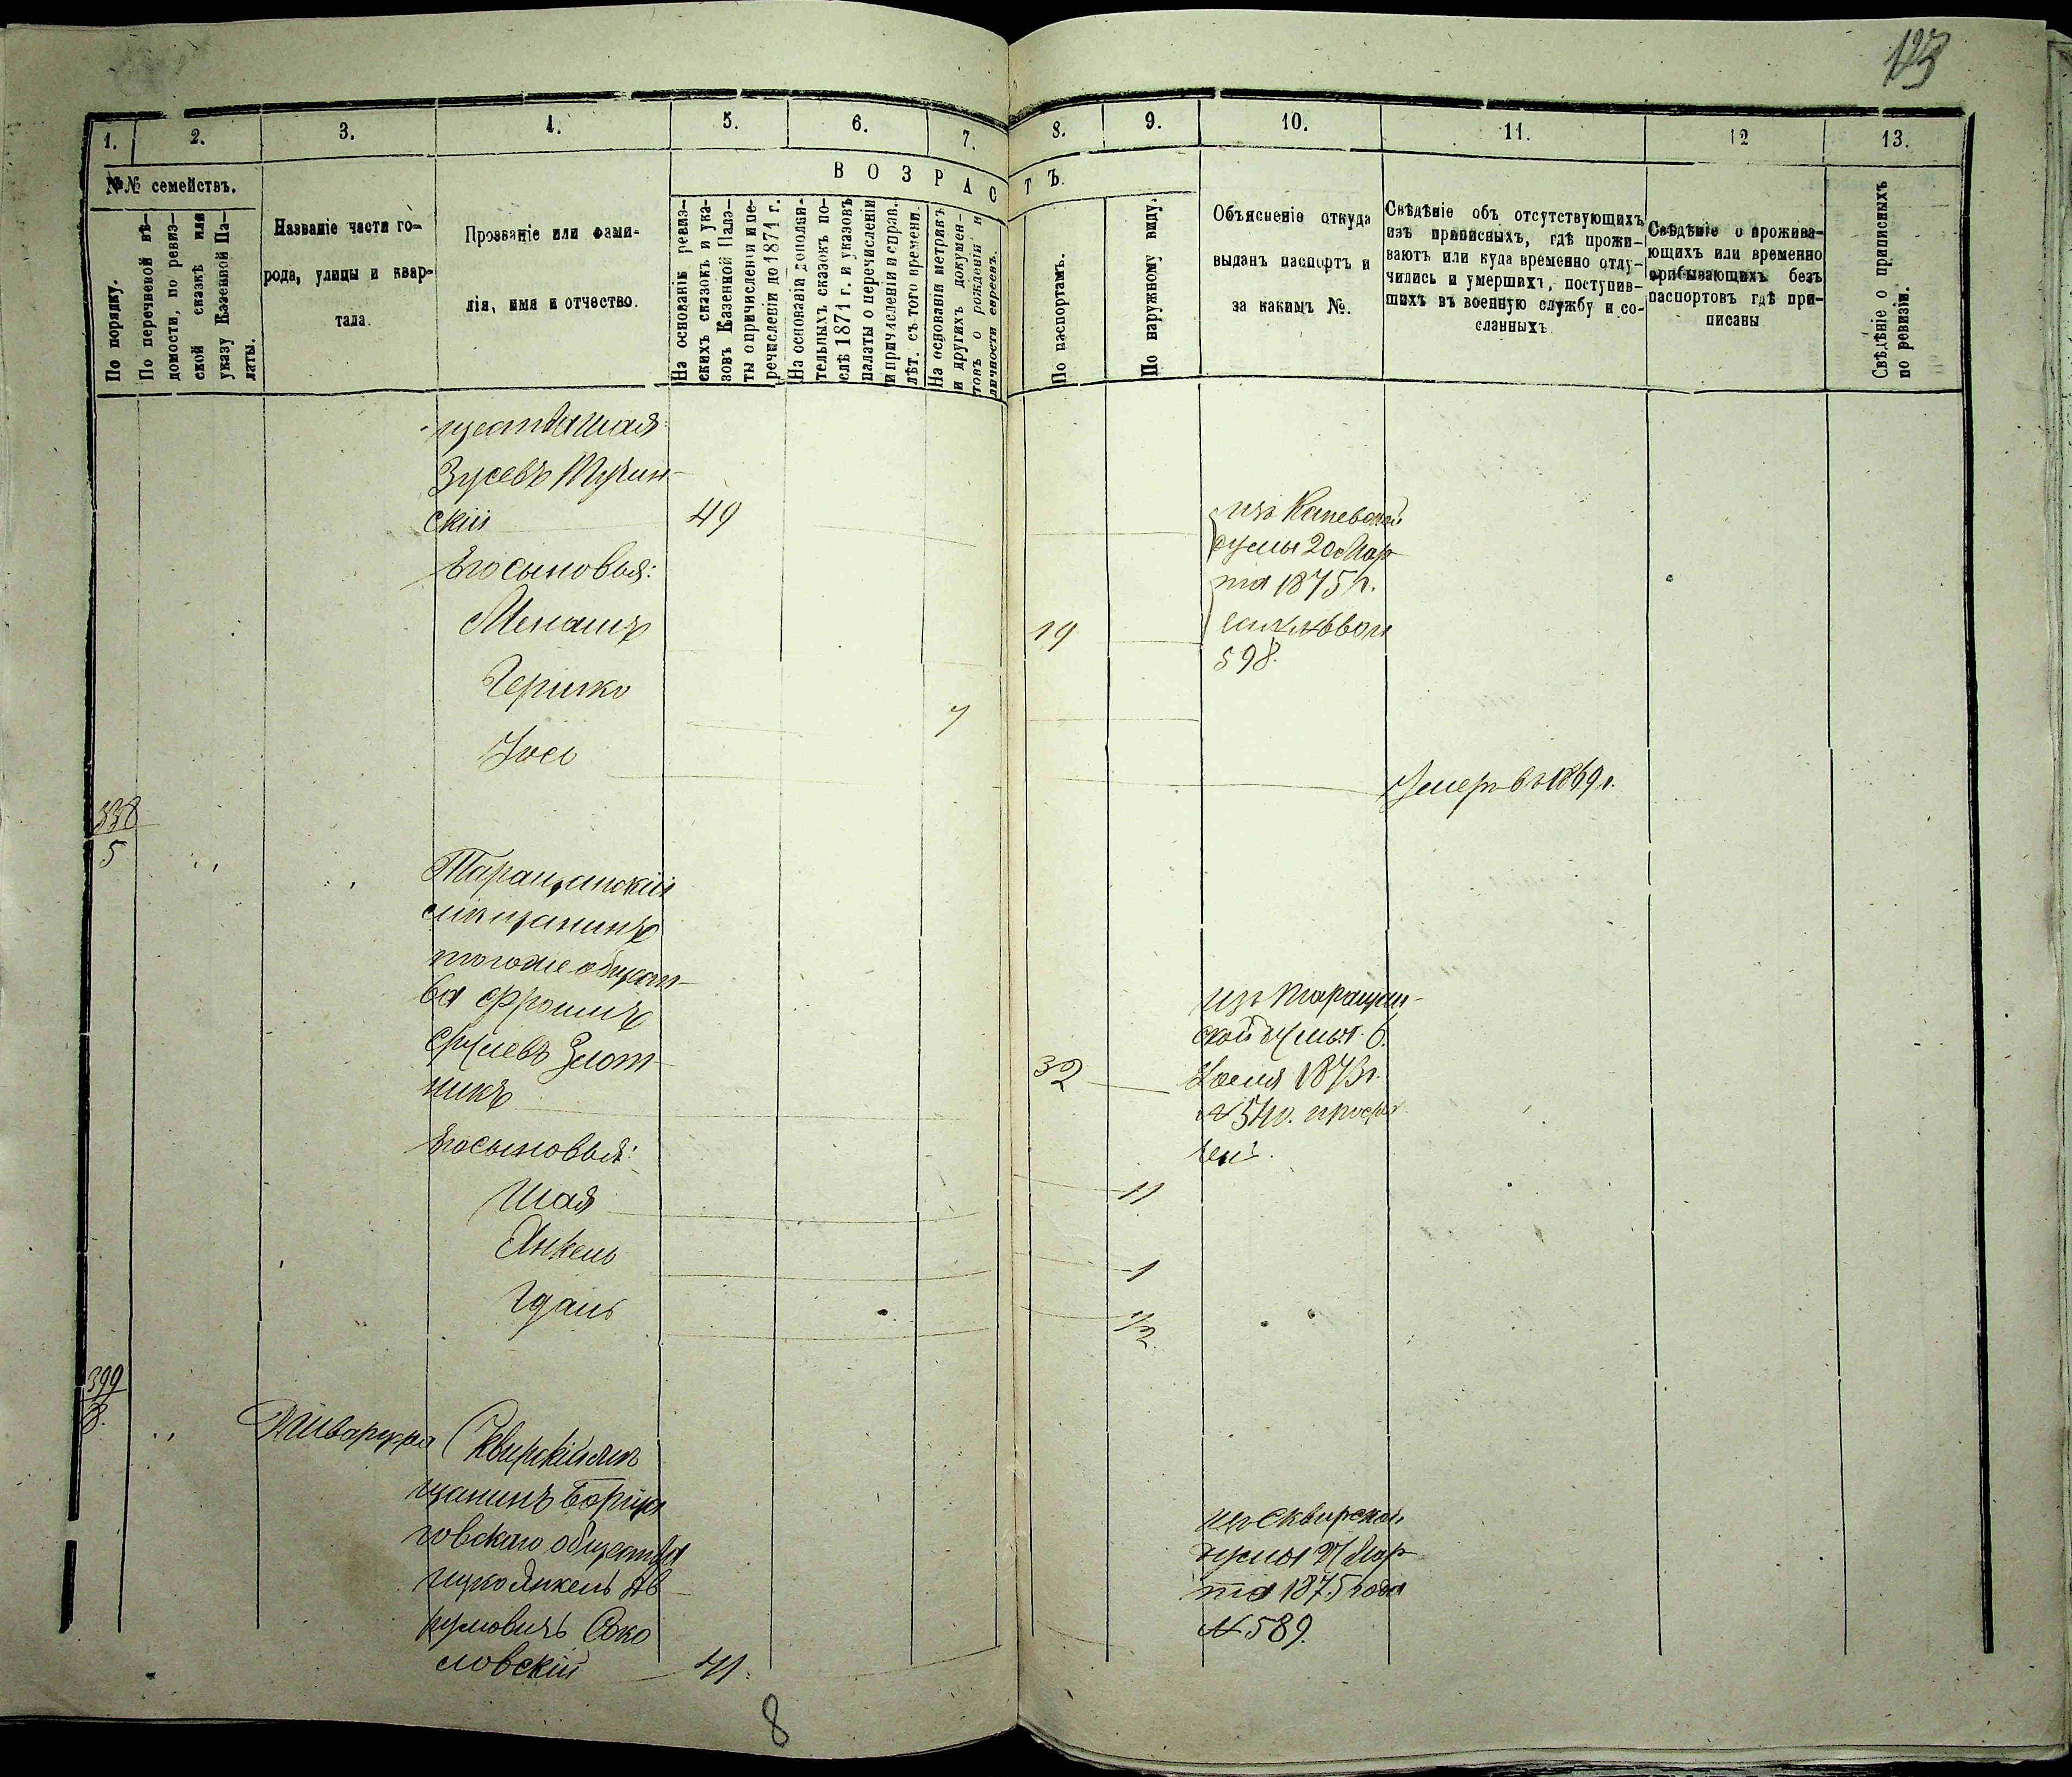 123
1. 2. 3. 4. 5. 6. 7. 8. 9. 10. 11. 12 13.
№№ семействъ.
По порядку.
По перечневой вѣ-
домости, по ревиз-
ской сказкѣ или
указу Казенной Па-
латы.
Названіе части го-
рода, улицы и квар-
тала.
Прозваніе или фами-
лія, имя и отчество.
ВОЗРАСТЪ.
На основаніи ревиз-
скихъ сказокъ и ука-
зовъ Казенной Пала-
ты о причисленіи и пе-
речисленіи до 1871 г.
На основаніи дополни-
тельныхъ сказокъ по-
слѣ 1871 г. и указовъ
палаты о перечисленіи
и причисленіи и справ.
лѣт. съ того времени.
На основаніи метрикъ
и другихъ докумен-
товъ о рожденіи и
личности евреевъ.
По паспортамъ.
По наружному виду.
Объясненіе откуда
выданъ паспортъ и
за какимъ №.
Свѣдѣніе объ отсутствующихъ
изъ приписныхъ, гдѣ прожи-
ваютъ или куда временно отлу-
чились и умершихъ, поступив-
шихъ въ военную службу и со-
сланныхъ
Свѣдѣніе о прожива-
ющихъ или временно
прибывающихъ безъ
паспортовъ гдѣ при-
писаны
Свѣдѣніе о приписныхъ
по ревизіи.
щества Шая
Зусевъ Тучин-
скій 49
Его сыновья:
Менашъ 19
Гершко 7
Іось
изъ Каневской
думы 20 Мар-
та 1875 г.
598.
Умеръ въ 1869 г.
338
5
Таращанскій
мѣщанинъ
того же общест-
ва Фроимъ
Сруlевъ Злот-
никъ 32
изъ Таращан-
ской думы 6
Іюня 1873 г.
№ 540. просро
чен.
Его сыновья:
Шая 11
Янкель 1
Идаль 1/2
399
8.
Сквирскій мѣ
щанинъ Борща
говскаго общества
Ицко Янкель Ав-
румовичъ Соко
ловскій 41.
изъ Сквирской
думы 21 Мар-
та 1875 года
№ 589.
8